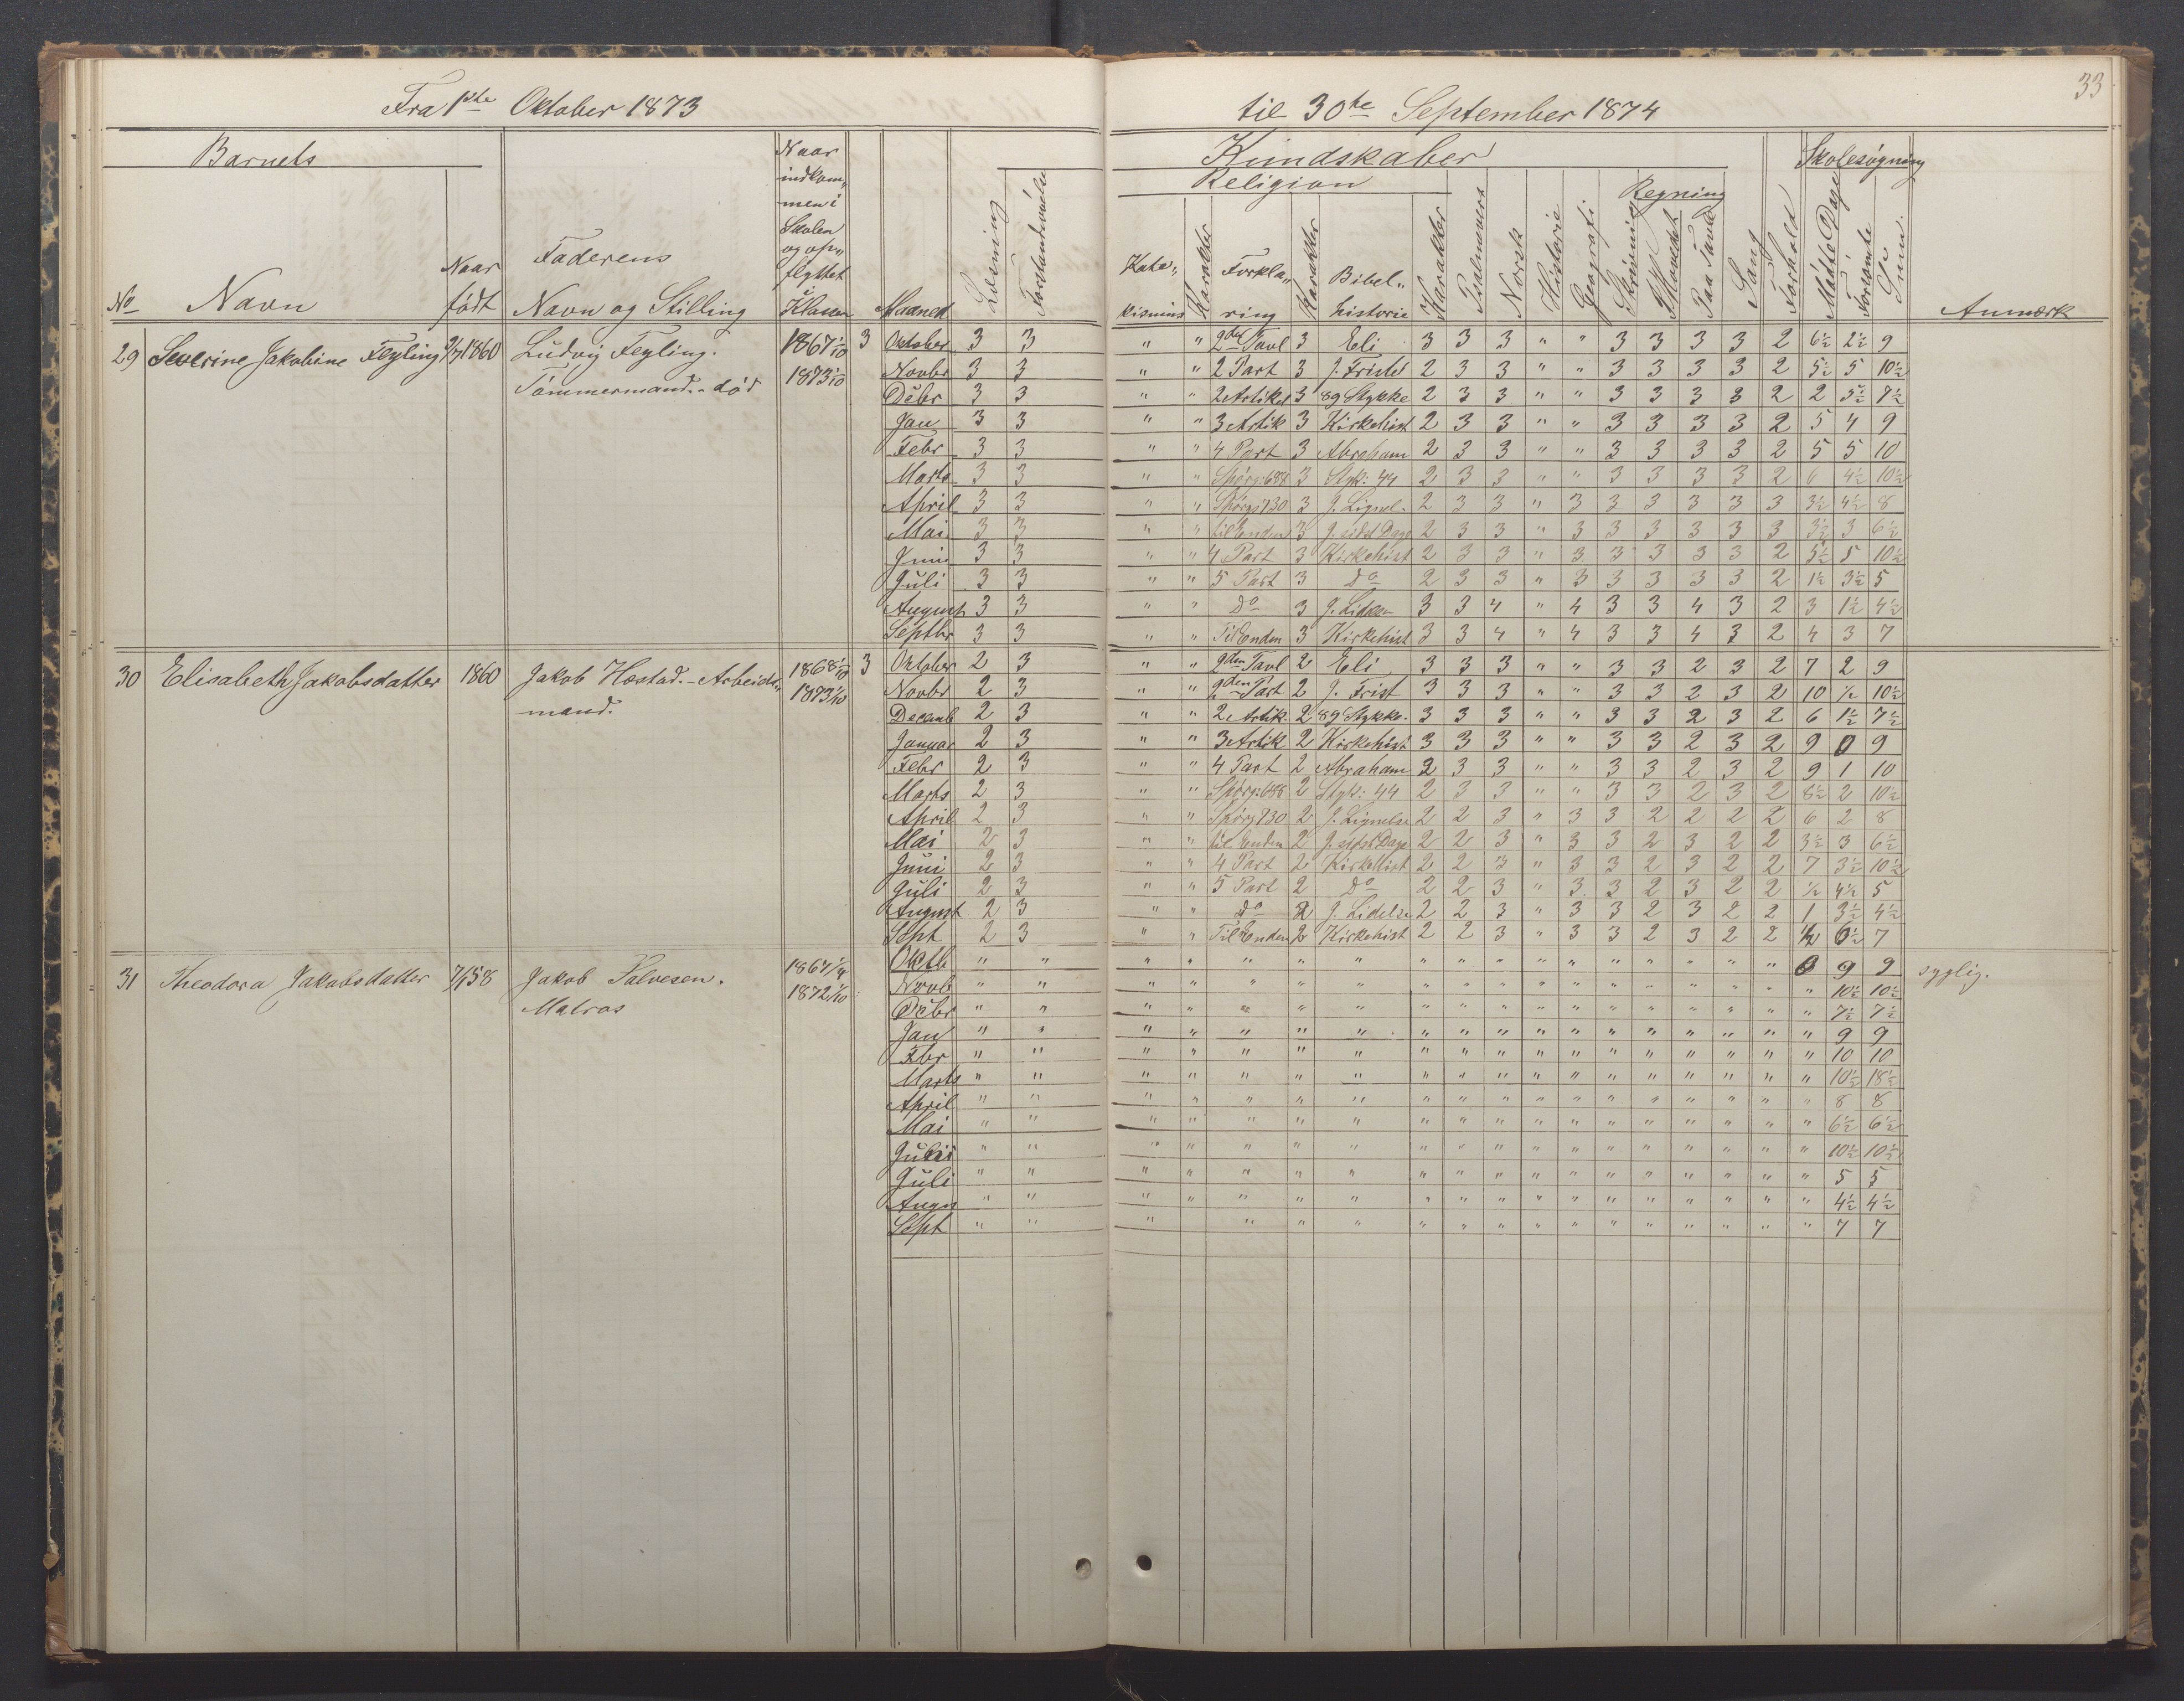 33
Fra 1ste Oktober 1873 til 30te September 1874
Barnets
No
Navn
Naar født
Faderens
Navn og Stilling
Naar
indkom„
men i
Skolen
og op„
flyttet
i
Klassen
Maaned
Læsning
Kundskaber
Religion
Kate„
kismus
Karakter
Forkla„
ring
Karakter
Bibel„
historie
Karakter
Psalmevers
Norsk
Historie
Geografi
Skrivning
Regning
I Hovedet
Paa Tavle
Sang
Forhold
Skolesøgning
Mødte Dage
Forsømte
Sum
Anmærk
29 Severine Jakobine Feyling 1860 Ludvig Feyling. 1867 1/10 3 Oktober 3 3 " " 2den Tavl 3 Eli 3 3 3 " " 3 3 3 3 2 6½ 2½ 9
Tømmermand.- død 1873 1/10 Novbr 3 3 " " 2 Part 3 J. Friste 2 3 3 " " 3 3 3 3 2 5½ 5 10½
Decbr 3 3 " " 2 Artikel 3 89 Stykke 2 3 3 " " 3 3 3 3 2 2 5½ 7½
Jan 3 3 " " 3 Artik 3 Kirkehist 2 3 3 " " 3 3 3 3 2 5 4 9
Febr 3 3 " " 4 Part 3 Abraham 2 3 3 " " 3 3 3 3 2 5 5 10
Marts 3 3 " " Spørg: 688 3 Styk: 44 2 3 3 " " 3 3 3 3 2 6 4½ 10½
April 3 3 " " Spørgs 730 3 J. Lignel. 2 3 3 " 3 3 3 3 3 3 3½ 4½ 8
Mai 3 3 " " til Enden 3 J. sidst Dage 2 3 3 " 3 3 3 3 3 3 3½ 3 6½
Juni 3 3 " " 4 Part 3 Kirkehist 2 3 3 " 3 3 3 3 3 2 5½ 5 10½
Juli 3 3 " " 5 Part 3 Do 2 3 3 " 3 3 3 3 3 2 1½ 3½ 5
August 3 3 " " Do 3 J. Lidelse 3 3 4 " 4 3 3 4 3 2 3 1½ 4½
Septbr 3 3 " " Til Enden 3 Kirkehist 3 3 4 " 4 3 3 4 3 2 4 3 7
30 Elisabeth Jakobsdatter 1860 Jakob Høstad.- Arbeids„ 1868 1/10 3 Oktober 2 3 " " 2den Tavl 2 Eli 3 3 3 " " 3 3 2 3 2 7 2 9
mand. 1873 1/10 Novbr 2 3 " " 2den Part 2 J. Frist 3 3 3 " " 3 3 2 3 2 10 ½ 10½
Decemb 2 3 " " 2 Artik. 2 89 Stykke. 3 3 3 " " 3 3 2 3 2 6 1½ 7½
Januar 2 3 " " 3 Artik 2 Kirkehist 3 3 3 " " 3 3 2 3 2 9 0 9
Febr 2 3 " " 4 Part 2 Abraham 2 3 3 " " 3 3 2 3 2 9 1 10
Marts 2 3 " " Spørg: 688 2 Styk: 44 2 3 3 " " 3 3 2 3 2 8½ 2 10½
April 2 3 " " Spørg 730 2 J. Lignelse 2 2 3 " 3 3 2 2 2 2 6 2 8
Mai 2 3 " " til Enden 2 J. sidst Dage 2 2 3 " 3 3 2 3 2 2 3½ 3 6½
Juni 2 3 " " 4 Part 2 Kirkehist 2 2 3 " 3 3 2 3 2 2 7 3½ 10½
Juli 2 3 " " 5 Part 2 Do 2 2 3 " 3 3 2 3 2 2 ½ 4½ 5
August 2 3 " " do 2 J. Lidelse 2 2 3 " 3 3 2 3 2 2 1 3½ 4½
Sept 2 3 " " Til Enden 2 Kirkehist 2 2 3 " 3 3 2 3 2 2 ½ 6½ 7
31 Theodora Jakobsdatter 7/1 58 Jakob Salvesen. 1867 1/4 Oktb " " " " " " " " " " " " " " " " " 0 9 9 syglig.
Matros 1872 1/10 Novb " " " " " " " " " " " " " " " " " " 10½ 10½
Decbr " " " " " " " " " " " " " " " " " " 7½ 7½
Jan " " " " " " " " " " " " " " " " " " 9 9
Fbr " " " " " " " " " " " " " " " " " " 10 10
Marts " " " " " " " " " " " " " " " " " " 10½ 18½
April " " " " " " " " " " " " " " " " " " 8 8
Mai " " " " " " " " " " " " " " " " " " 6½ 6½
Juni " " " " " " " " " " " " " " " " " " 10½ 10½
Juli " " " " " " " " " " " " " " " " " " 5 5
Augu " " " " " " " " " " " " " " " " " " 4½ 4½
Sept " " " " " " " " " " " " " " " " " 7 7